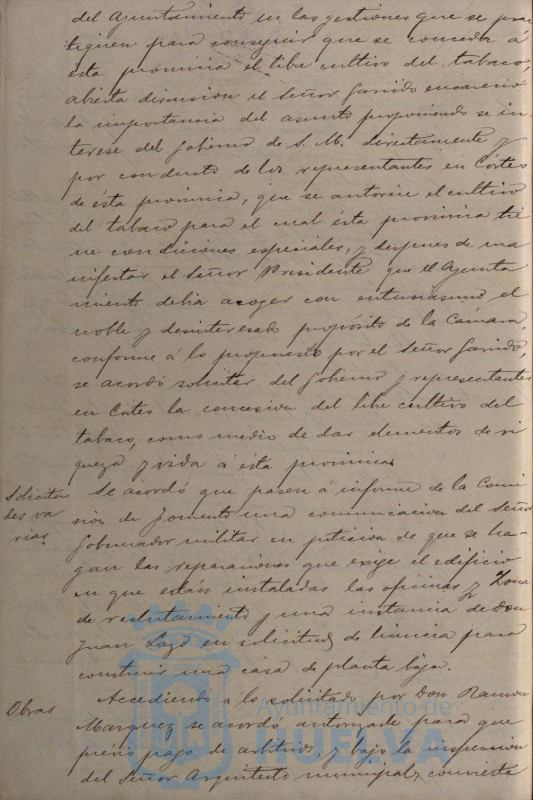 del Ayuntamiento en las gestiones que se prac
tiquen para conseguir que se conceda á
ésta provincia el libre cultivo del tabaco,
abierta discusion el Señor Garrido encareció
la importancia del asunto proponiendo se in
terese del Gobierno de S. M. directamente y
por conducto de los representantes en Córtes
de ésta provincia, que se autorice el cultivo
del tabaco para el cual ésta provincia tie
ne condiciones especiales, y despues de ma
nifestar el Señor Presidente que el Ayunta
miento debia acoger con entusiasmo el
noble y desinteresado propósito de la Cámara,
conforme á lo propuesto por el Señor Garrido,
se acordó solicitar del Gobierno y representantes
en Córtes la concesion del libre cultivo del
tabaco, como medio de dar elementos de ri
queza y vida á ésta provincia.
Solicitu
des va
rias.
Se acordó que pasen á informe de la Comi
sion de Fomento una comunicacion del Señor
Gobernador militar en peticion de que se ha-
gan las reparaciones que exige el edificio
en que están instaladas las oficinas y Zona
de reclutamiento y una instancia de Don
Juan Lazo en solicitud de licencia para
construir una casa de planta baja.
Obras
Accediendo á lo solicitado por Don Ramon
Marquez se acordó autorizarle para que
previo pago de arbitrios, y bajo la inspeccion
del Señor Arquitecto municipal, convierta
Ayuntamiento de
HUELVA